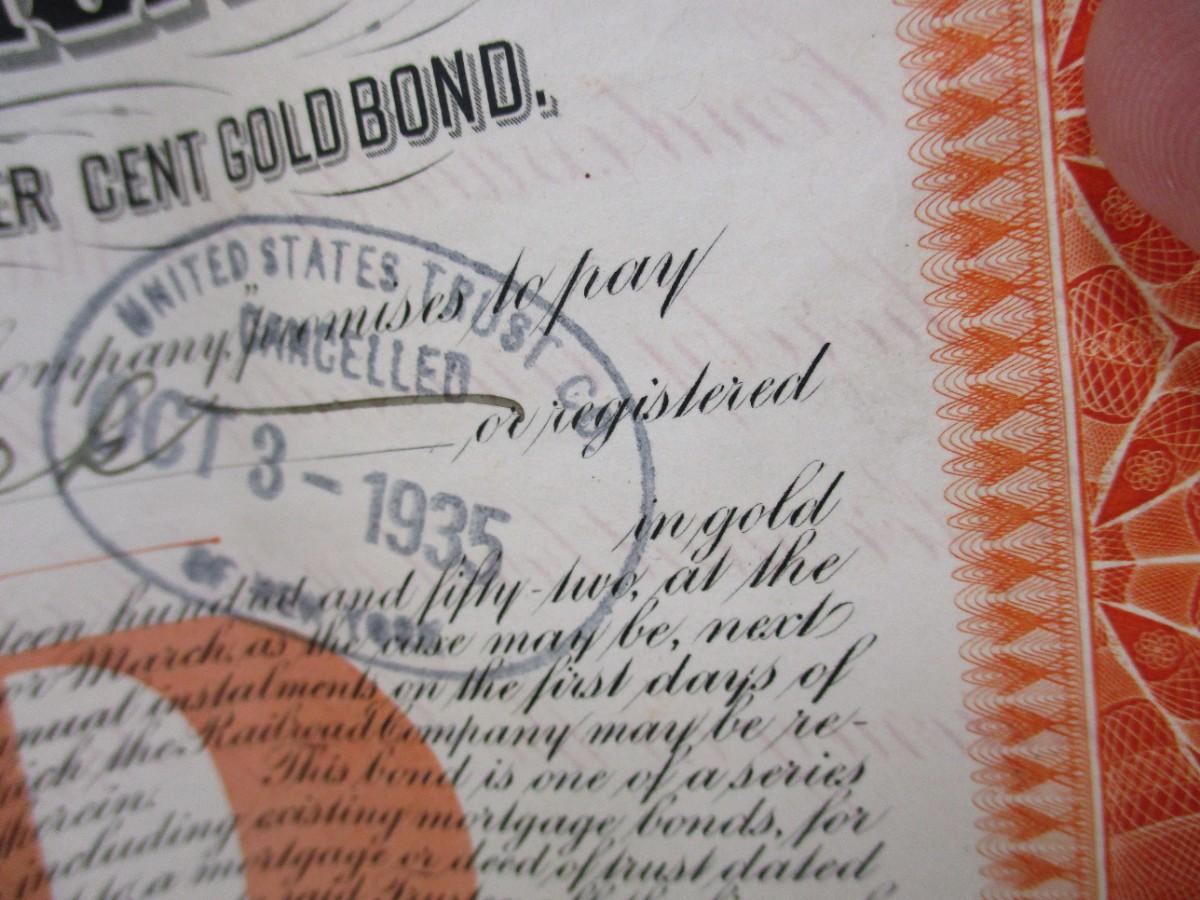 ER CENT GOLD BOND.
UNITED STATES TRUST CO
Company, promises to pay
CANCELLED
or registered
OCT 3 - 1935
in gold
OF NEW YORK
teen hundred and fifty-two, at the
or March, as the case may be, next
nual instalments on the first days of
ich the Railroad Company may be re-
therein. This bond is one of a series
including existing mortgage bonds, for
t to a mortgage or deed of trust dated